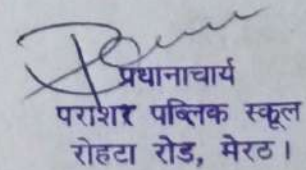 प्रधानाचार्य
पराशर पब्लिक स्कूल
रोहटा रोड, मेरठ।